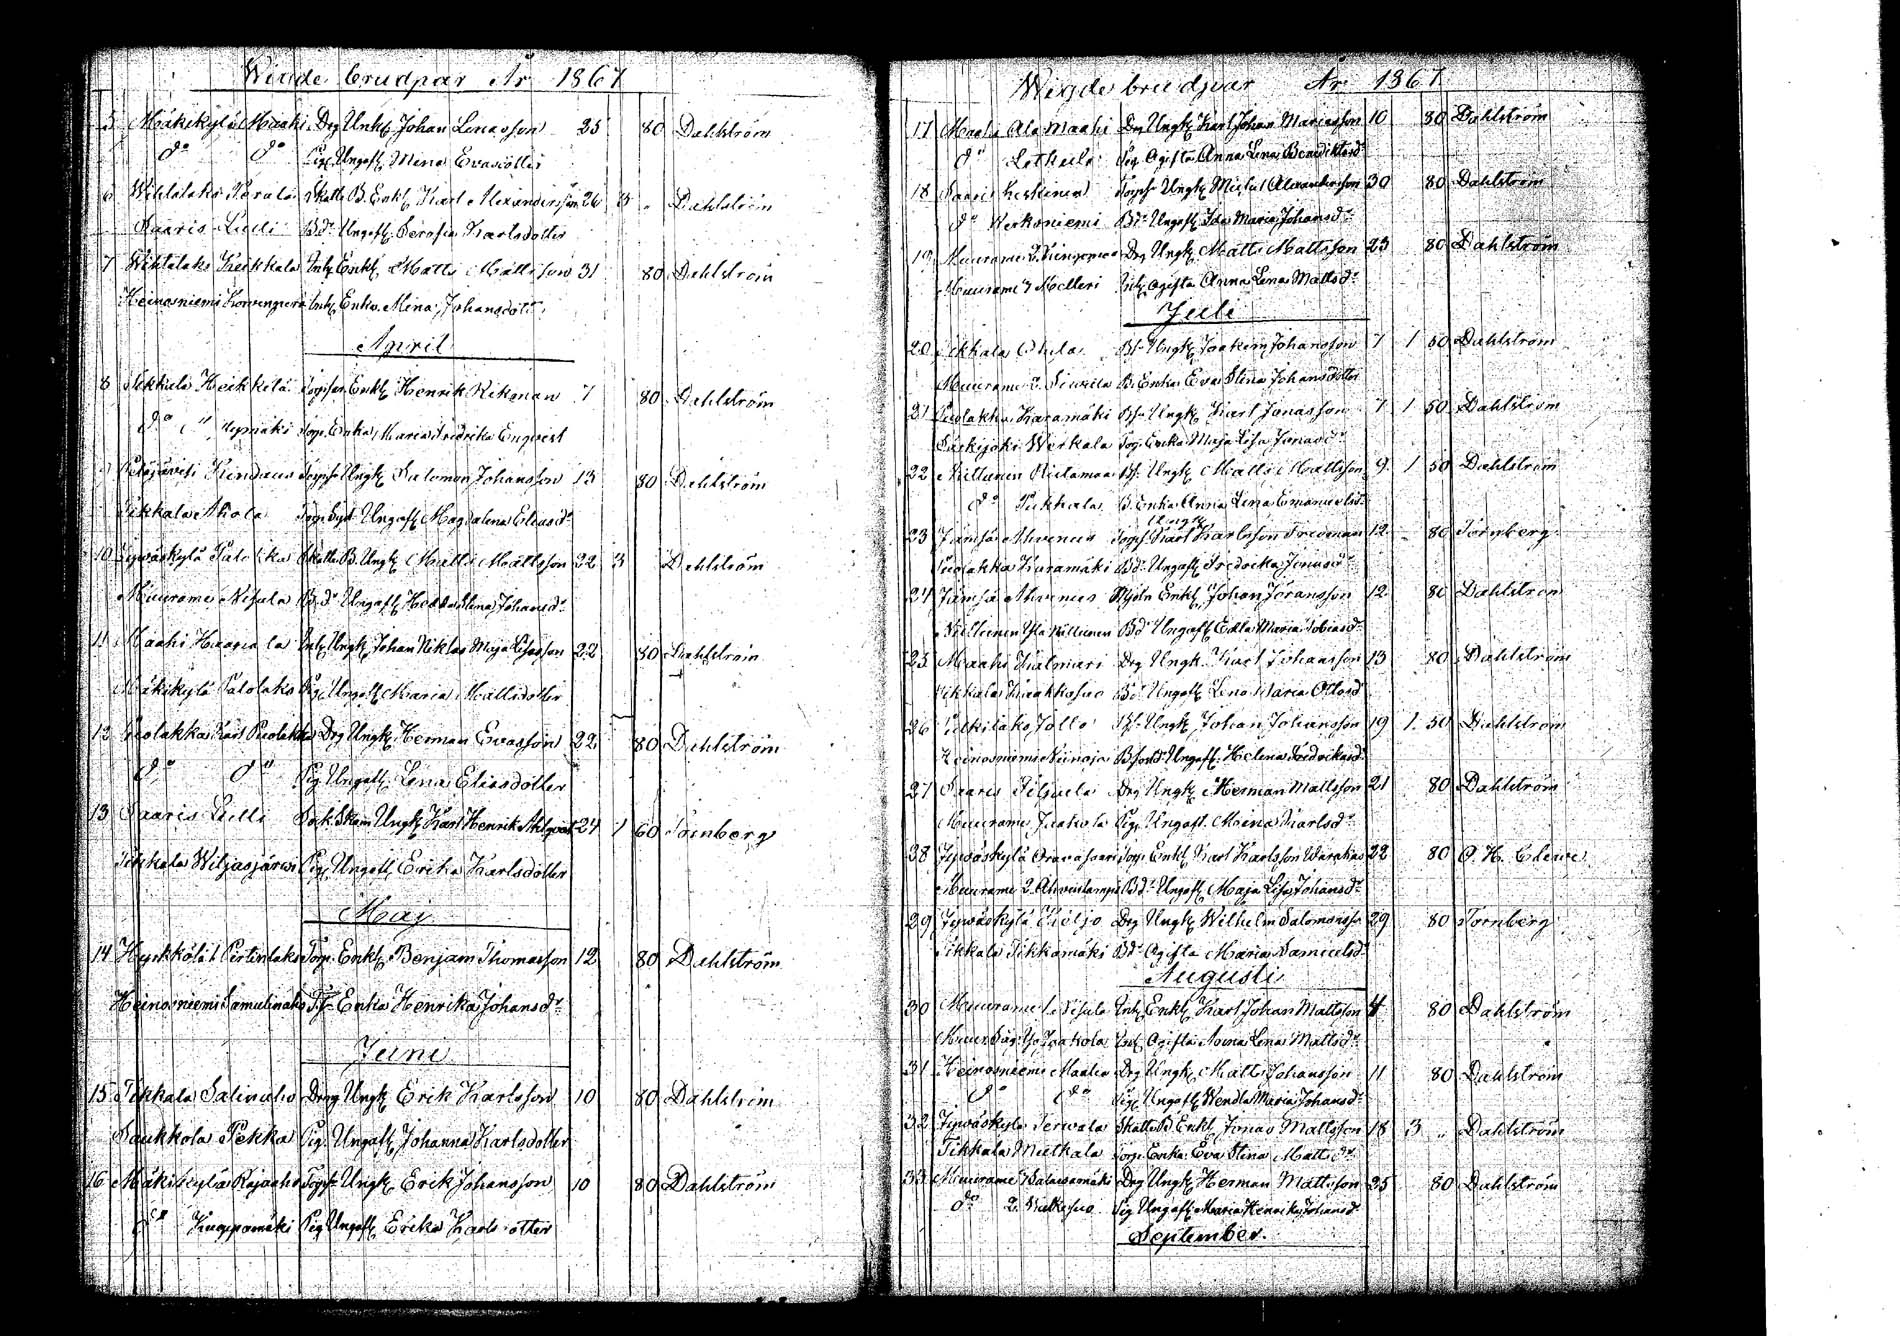 Wigde brudpar År 1867
5 Mäkikylä Maahi Drg Ungk Johan Lenasson 25 80 Dahlström
do do Pig Ungaft Mina Evasdotter
6 Wihtalaks Perälä Skatte B. Enkl Karl Alexandersson 26 3 " Dahlström
Saaris Lulli Bdr Ungaft Serafia Karlsdotter
7 Wihtalaks Keikkala Inh Enkl Matts Mattsson 31 80 Dahlström
Heinosniemi Korvenperä Inh Enka Mina Johansdottr
April
8 Tikkala Heikkilä Torpar Enkl Henrik Kekonan 7 80 Dahlström
do Torp. Enka Maria Fredrika Enqvist
9 Petäjävesi Kindaus Torpar Ungk Salomon Johansson 13 80 Dahlström
Tikkala Ahola Torp Ungaft Magdalena Eliasdr
10 Jyväskylä Palokka Skatte B. Ungk Matts Mattsson 22 3 Dahlström
Muurame Nisula B.dr Ungaft Hedda Stina Johansdr
11 Maahi Haapala Inh Ungk Johan Niklas Maja Lisasson 22 80 Dahlström
Mäkikylä Palolaks Pig Ungaft Maria Mattsdotter
12 Puolakka Puolakka Drg Ungk Herman Evasson 22 80 Dahlström
do do Pig Ungaft Lena Eliasdotter
13 Saaris Lulli Sock. Skom Ungk Karl Henrik Ahlqvist 24 1 60 Törnberg
Tikkala Wiljasjärwi Pig Ungaft Erika Karlsdotter
Maj
14 Hyrkkölä Pertunlaks Torp. Enkl Benjam Thomasson 12 80 Dahlström
Heinosniemi Samulinaho Enka Henrika Johansdr
Juni
15 Tikkala Salinaho Dreng Ungk Erik Karlsson 10 80 Dahlström
Saukkola Pekka Pig Ungaft Johanna Karlsdotter
16 Mäkikylä Rajaaho Torpar Ungk Erik Johansson 10 80 Dahlström
do Kuappamäki Pig Ungaft Erika Karlsdotter
Wigde brudpar År 1867
17 Maahi Ala Maahi Drg Ungk Karl Johan Mariasson 10 80 Dahlström
do Pig Ogifta Anna Lena Benediktsdr
18 Saaris Keskinen Torpar Ungk Michel Alexandersson 30 80 Dahlström
do Werkoniemi Bdr Ungaft Ida Maria Johansdr
19 Muurame Drg Ungk Matts Mattsson 23 80 Dahlström
Muurame 7 Melleri Inh Ogifta Anna Lena Mattsdr
Juli
20 Tikkala Ahola Bs Ungk Joakim Johansson 7 1 50 Dahlström
Muurame 2 B. Enka Eva Stina Johansdotter
21 Puolakka Karamäki Bs Ungk Karl Jonasson 7 1 50 Dahlström
Särkijoki Werkala Torp. Enka Maja Lisa Jonasdr
22 Niittunen Bs Ungk Matts Mattsson 9 1 50 Dahlström
do Pukkala B. Enka Anna Lena Emanuelsdr
Ungk
23 Jämsä Ahvenus Torpar Karl Karlsson Fredman 12 80 Törnberg
Puolakka Karamäki Bdr Ungaft Fredrika Jonasdr
24 Jämsä Ahvenus Enkl Johan Joransson 12 80 Dahlström
Niittunen Ala Niittunen Bdr Ungaft Edla Maria Tobiasdr
25 Maahi Kalmari Drg Ungk Karl Johansson 13 80 Dahlström
Tikkala Kuakkosuo Bdr Ungaft Lena Maria Ottosdr
26 Jollo Bs Ungk Johan Johansson 19 1 50 Dahlström
Heinosniemi Ungaft Helena Fredriksdr
27 Saaris Drg Ungk Herman Mattsson 21 80 Dahlström
Muurame Jaakola Pig Ungaft Maria Karlsdr
28 Jyväskylä Oravasaari Torp Enkl Karl Karlsson Warakas 22 80 O. H. Cleve
Muurame 2 Ahvenlampi Bdr Ungaft Maja Lisa Johansdr
29 Jyväskylä Keljo Drg Ungk Wilhelm Salomonsson 29 80 Törnberg
Tikkala Tikkamäki Bdr Ogifta Maria Samuelsdr
Augusti
30 Muurame 1 Nisula Inh Enkl Karl Johan Mattsson 4 80 Dahlström
Jaakola Inh Ogifta Anna Lena Mattsdr
31 Heinosniemi Maalin Drg Ungk Matts Johansson 11 80 Dahlström
do do Pig Ungaft Wendla Maria Johansdr
32 Jyväskylä Terwala Skatte B Enkl Jonas Mattsson 18 3 " Dahlström
Tikkala Mutkala Torp. Enka Eva Stina Mattsdr
33 Muurame 7 Drg Ungk Herman Mattsson 25 80 Dahlström
do 2 Pig Ungaft Maria Henrika Johansdr
September.